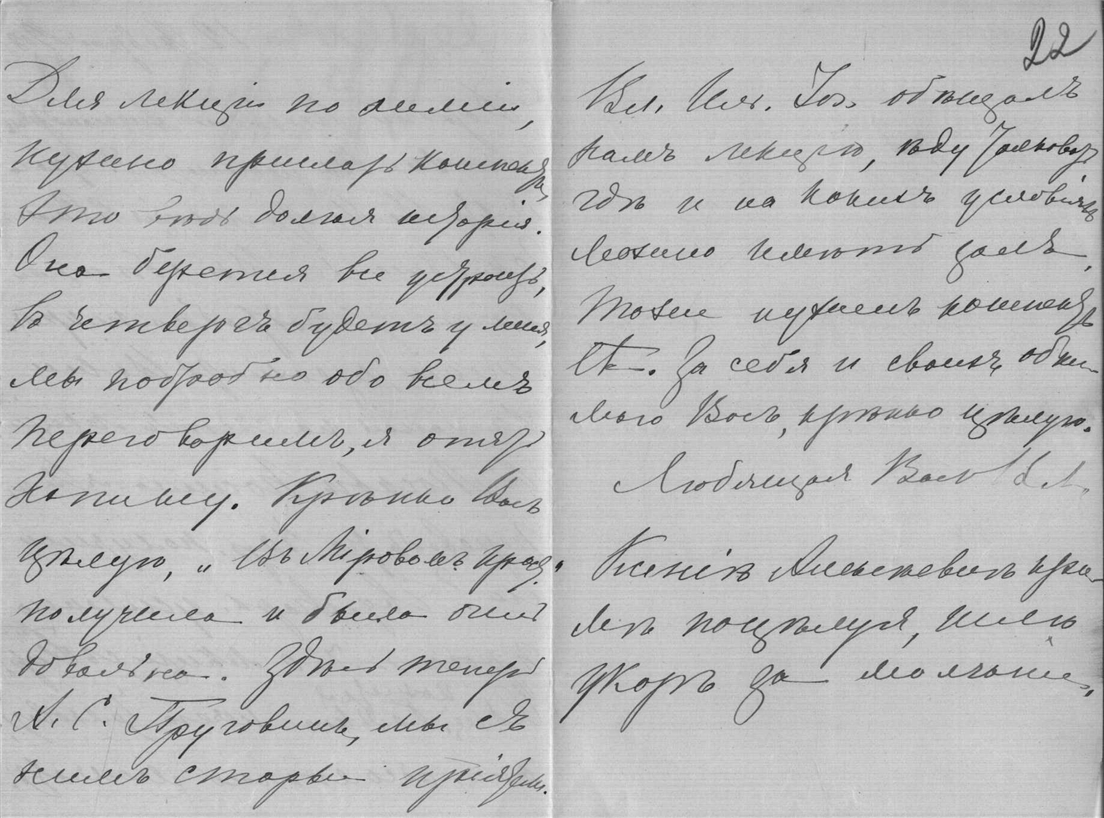 22
Для лекціи по химіи,
нужно прислать конспектъ,
это долгая исторія.
Она берется все устроить,
въ четвергъ будетъ у меня,
мы подробно обо всемъ
переговоримъ, я опять
напишу. Крѣпко Васъ
цѣлую, „Въ Міровомъ
получила и была очень
довольна. Здѣсь теперь
А. С. Пругавинъ, мы съ
нимъ старые пріятели.
Вл. Ил. обѣщалъ
намъ лекцію,
гдѣ и на какихъ условіяхъ
можно имѣть залъ,
тоже нуженъ конспектъ
За себя и своихъ обни-
маю Васъ, крѣпко цѣлую.
Любящая Васъ
Ксенію Алексѣевну
поцѣлуя, шлю
укоръ за молчаніе.